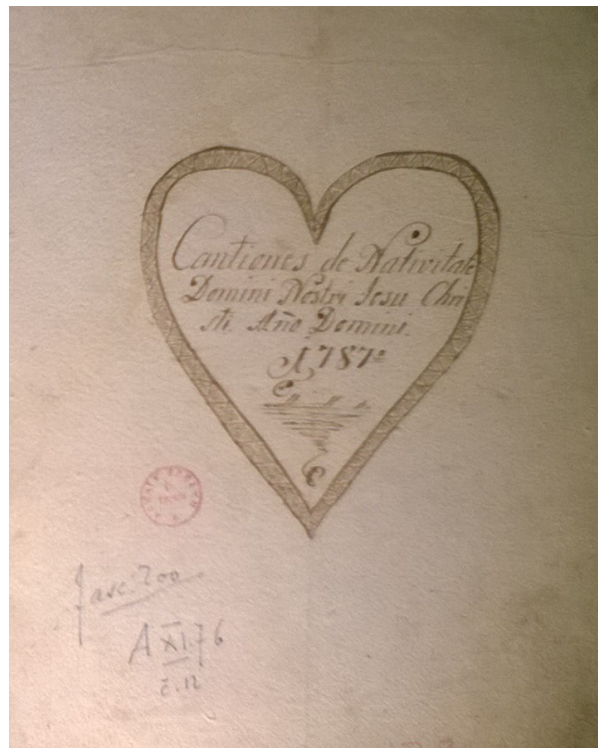 Cantiones de Nativitate
Domini Nostri Jesu Chri
sti. Año Domini.
1787º
Fasc. 200
A XI.76
č. 12